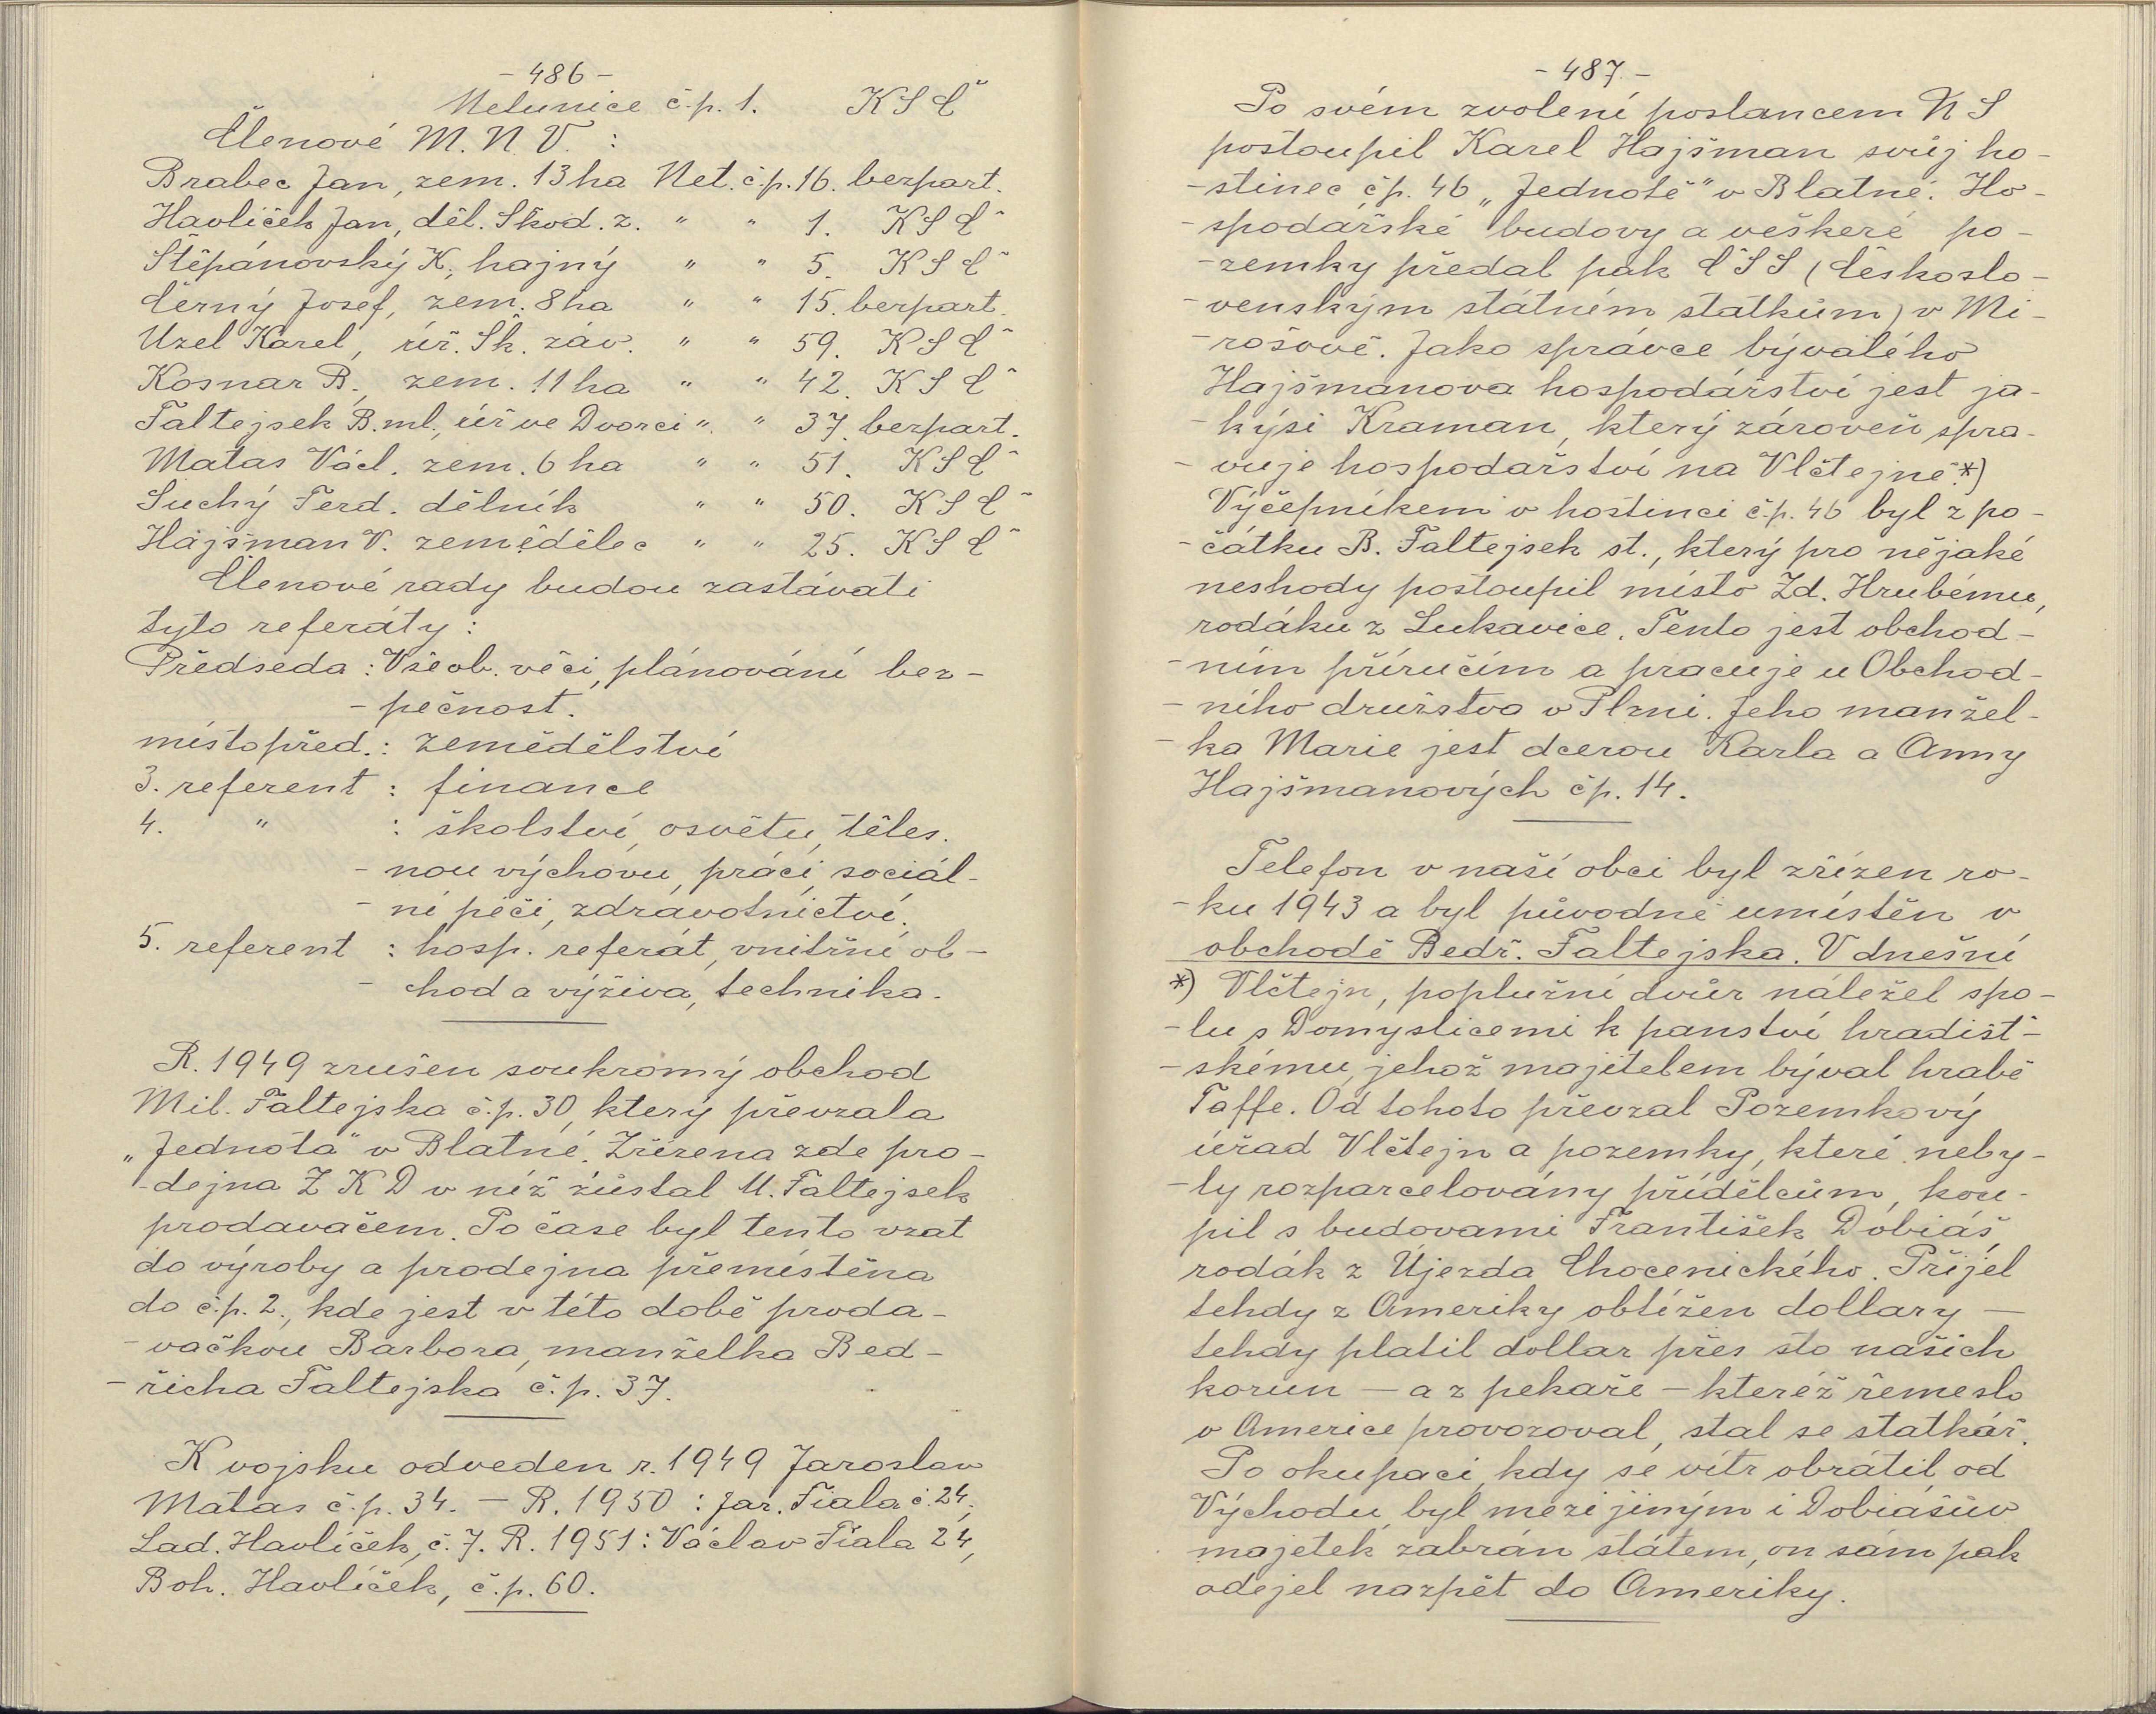 - 486 -
Netunice č.p. 1. KSČ
Členové M.N.V. :
Brabec Jan, zem. 13 ha Net. č.p. 16. bezpart.
Havlíček Jan, děl. Škod. z. " " 1. KSČ
Štěpánovský K., hajný " " 5. KSČ
Černý Josef, zem. 8 ha " " 15. bezpart.
Uzel Karel, úř. Šk. záv. " " 59. KSČ
Kosnar B., zem. 11 ha " " 42. KSČ
Faltejsek B. ml., úř. ve Dvorci " " 37. bezpart.
Matas Václ. zem. 6 ha " " 51. KSČ
Suchý Ferd. dělník " " 50. KSČ
Hajšman V. zemědělec " " 25. KSČ
Členové rady budou zastávati
tyto referáty :
Předseda : Všeob. věci, plánování bez-
- pečnost.
místopřed. : zemědělství
3. referent : finance
4. " : školství, osvětu, těles.
- nou výchovu, práci, sociál-
- ní péči, zdravotnictví.
5. referent : hosp. referát, vnitřní ob-
- chod a výživa, technika.
R. 1949 zrušen soukromý obchod
Mil. Faltejska č.p. 30, který převzala
„Jednota" v Blatné. Zřízena zde pro-
- dejna Z K D v níž zůstal M. Faltejsek
prodavačem. Po čase byl tento vzat
do výroby a prodejna přemístěna
do č.p. 2., kde jest v této době proda-
- vačkou Barbora, manželka Bed-
- řicha Faltejska č.p. 37.
K vojsku odveden r. 1949 Jaroslav
Matas č.p. 34. — R. 1950 : Jar. Fiala č. 24,
Lad. Havlíček, č. 7. R. 1951 : Václav Fiala 24,
Boh. Havlíček, č.p. 60.
- 487. -
Po svém zvolení poslancem N S
postoupil Karel Hajšman svůj ho-
- stinec čp. 46 „Jednotě" v Blatné. Ho-
- spodářské budovy a veškeré po-
- zemky předal pak ČSS (Českoslo-
- venským státním statkům) v Mi-
- rošově. Jako správce bývalého
Hajšmanova hospodářství jest ja-
- kýsi Kraman, který zároveň spra-
- vuje hospodářství na Vlčtejně.*)
Výčepníkem v hostinci č.p. 46 byl z po-
- čátku B. Faltejsek st., který pro nějaké
neshody postoupil místo Zd. Hrubému,
rodáku z Lukavice. Tento jest obchod-
- ním příručím a pracuje u Obchod-
- ního družstva v Plzni. Jeho manžel-
- ka Marie jest dcerou Karla a Anny
Hajšmanových čp. 14.
Telefon v naší obci byl zřízen ro-
- ku 1943 a byl původně umístěn v
obchodě Bedř. Faltejska. V dnešní
*) Vlčtejn, poplužní dvůr náležel spo-
- lu s Domyslicemi k panství hradišt-
- skému, jehož majitelem býval hrabě
Taffe. Od tohoto převzal Pozemkový
úřad Vlčtejn a pozemky, které neby-
- ly rozparcelovány přídělcům, kou-
pil s budovami František Dobiáš,
rodák z Újezda Chocenického. Přijel
tehdy z Ameriky obtížen dollary —
tehdy platil dollar přes sto našich
korun — a z pekaře — kteréž řemeslo
v Americe provozoval, stal se statkář.
Po okupaci, kdy se vítr obrátil od
Východu, byl mezi jiným i Dobiášův
majetek zabrán státem, on sám pak
odejel nazpět do Ameriky.